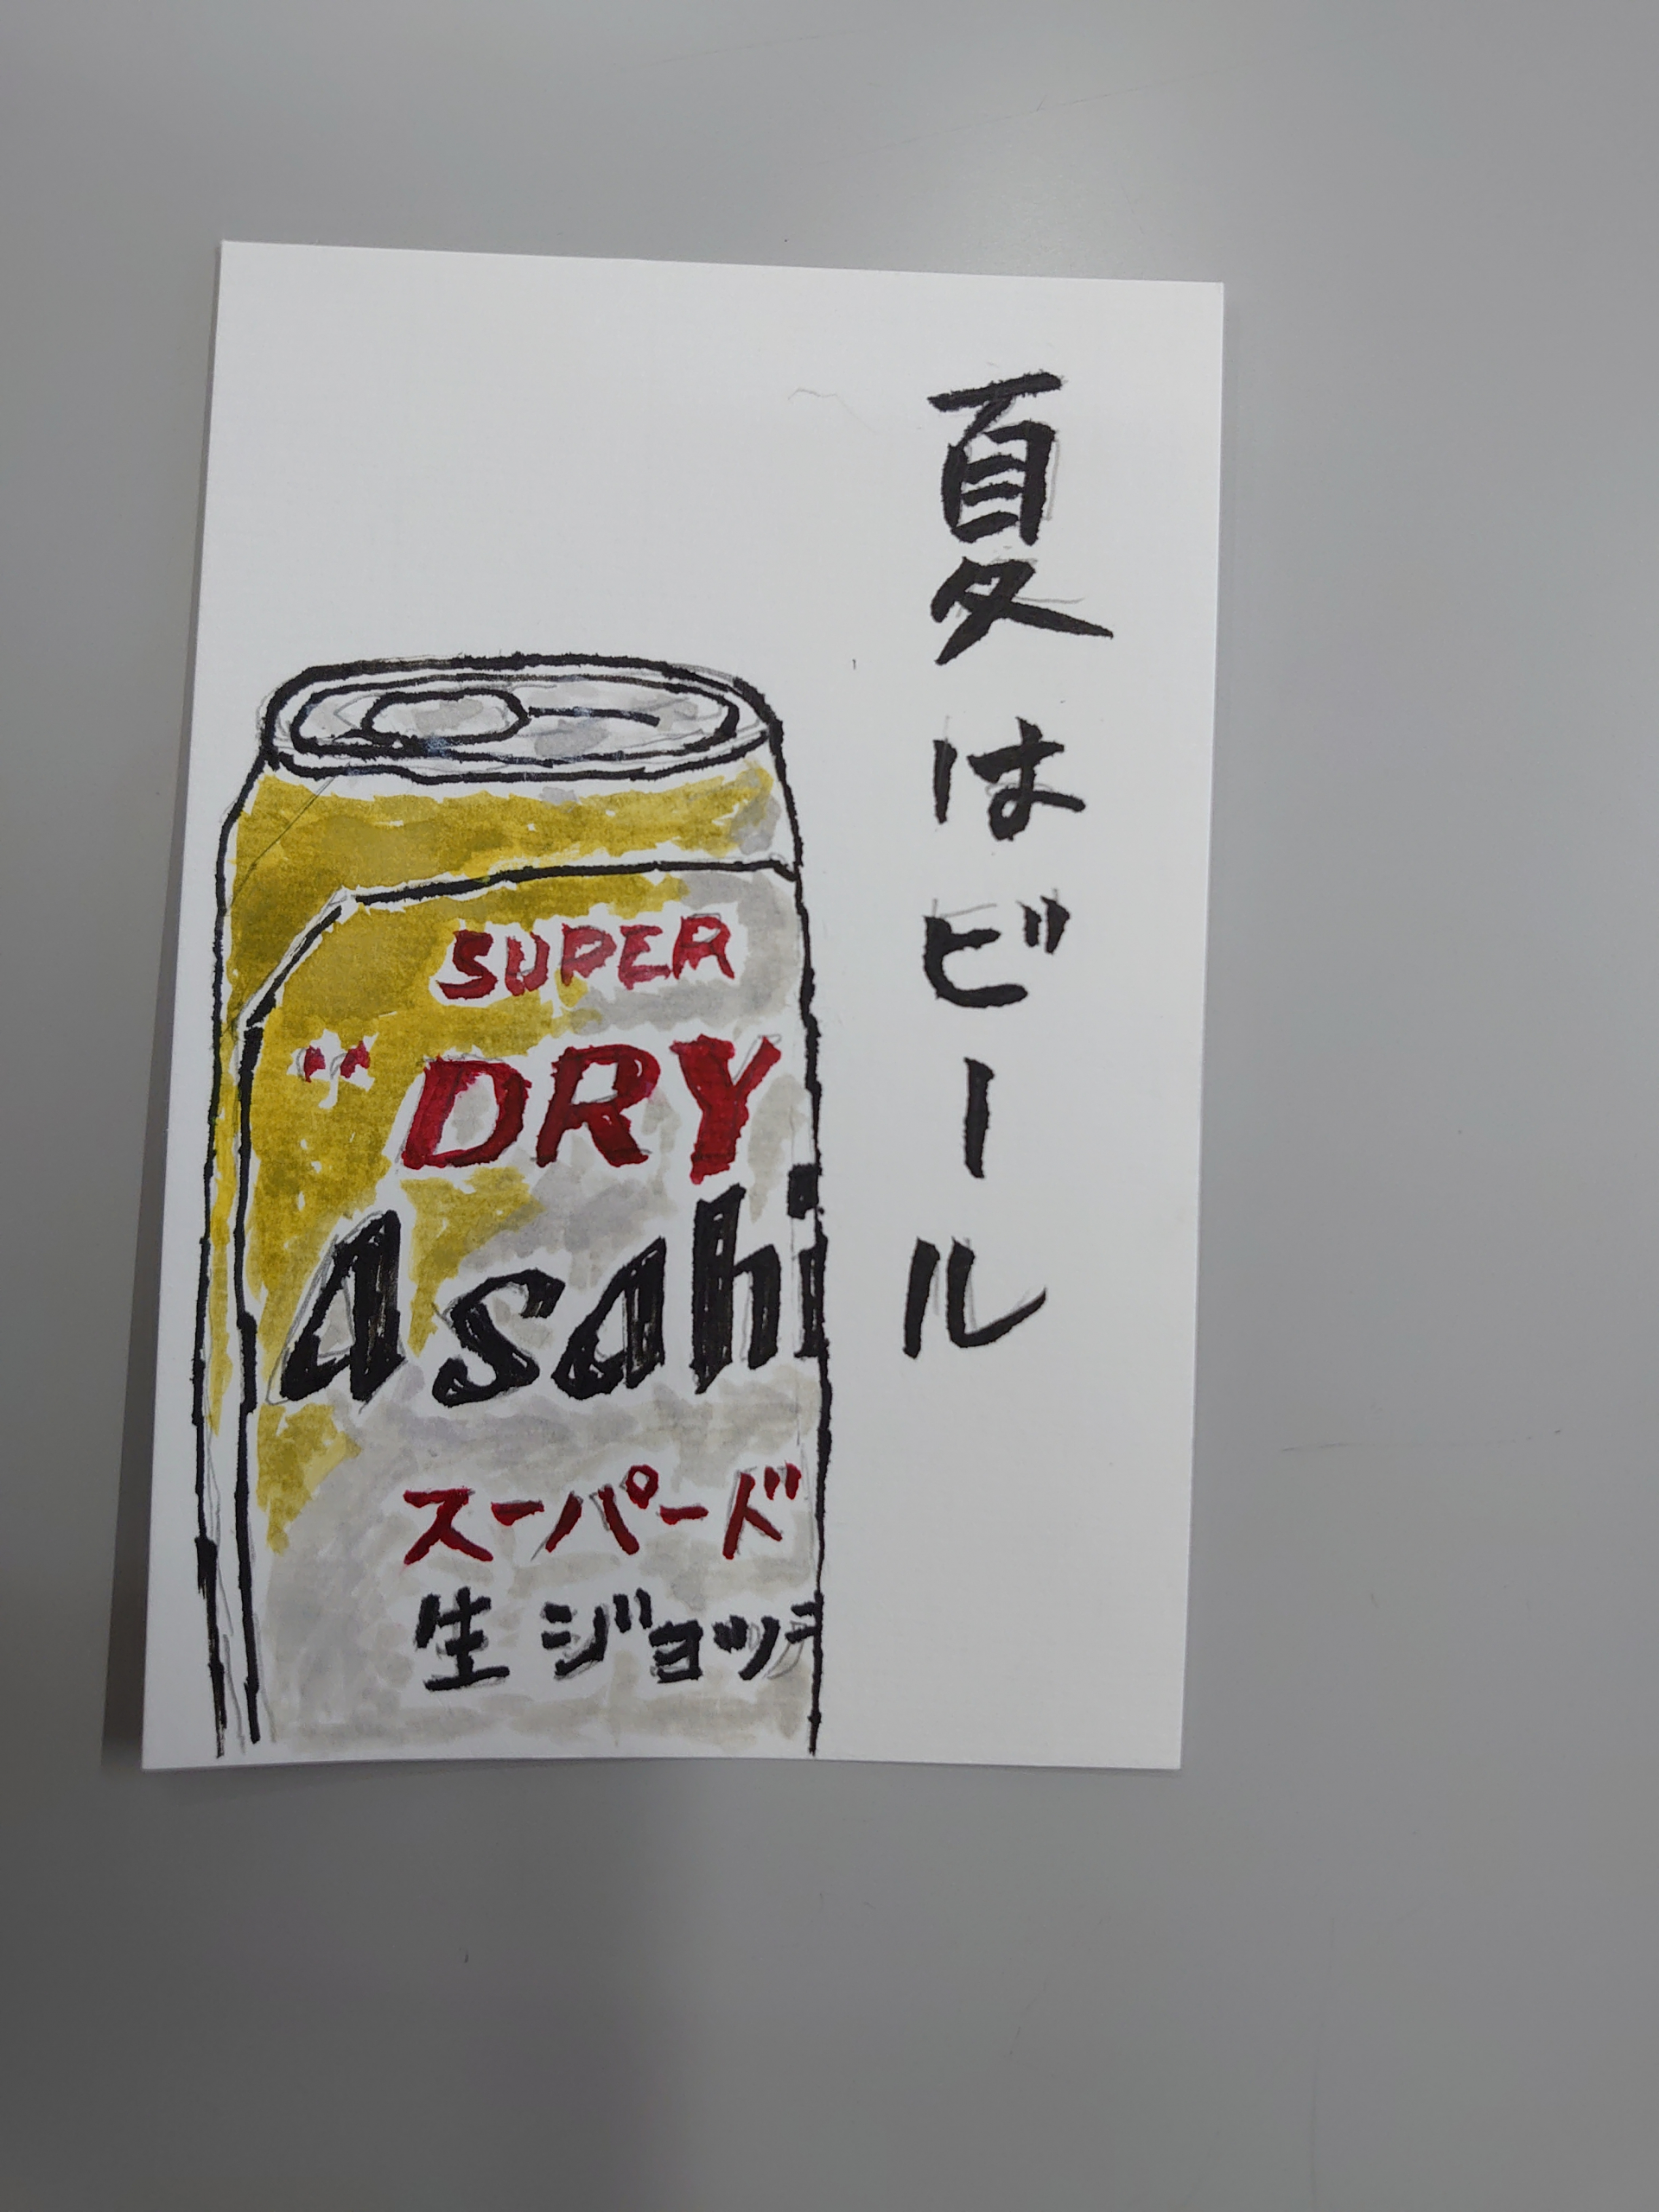 夏はビール
SUPER
"DRY
Asahi
スーパード
生ジョッキ